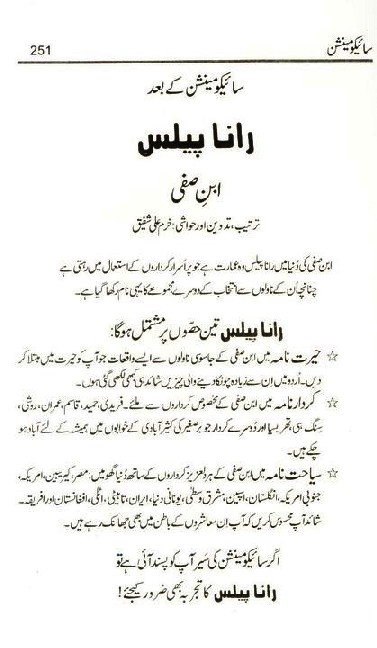 سائیکو مینشن 251
سائیکو مینشن کے بعد
رانا پیلس
ابنِ صفی
ترتیب، تدوین اور حواشی: خرم علی شفیق
ابن صفی کی دُنیا میں رانا پیلس وہ عمارت ہے جو پراسرار کرداروں کے استعمال میں رہتی ہے
چنانچہ اُن کے ناولوں سے انتخاب کے دوسرے مجموعے کا یہی نام رکھا گیا ہے۔
رانا پیلس تین حصوں پر مشتمل ہوگا:
☆ حیرت نامہ میں ابن صفی کے جاسوسی ناولوں سے ایسے واقعات جو آپ کو حیرت میں مبتلا کر
دیں۔ اُردو میں ان سے زیادہ چونکا دینے والی چیزیں شائد ہی کبھی لکھی گئی ہوں۔
☆ کردار نامہ میں ابن صفی کے مخصوص کرداروں سے ملئے۔ فریدی، حمید، قاسم، عمران، روشی،
سنگ ہی، تھریسیا اور دُوسرے کردار جو برصغیر کی کثیر آبادی کے خوابوں میں ہمیشہ کے لئے آباد ہو
چکے ہیں۔
☆ سیاحت نامہ میں ابن صفی کے ہر دلعزیز کرداروں کے ساتھ دُنیا گھومیں: مصر، کیریبین، امریکہ،
جنوبی امریکہ، انگلستان، اسپین، مشرق وسطیٰ، یونانی دنیا، ایران، تاہیتی، اٹلی، افغانستان اور افریقہ۔
شائد آپ محسوس کریں کہ آپ اِن معاشروں کے باطن میں بھی جھانک رہے ہیں۔
اگر سائیکو مینشن کی سیر آپ کو پسند آئی ہے تو
رانا پیلس کا تجربہ بھی ضرور کیجئے!